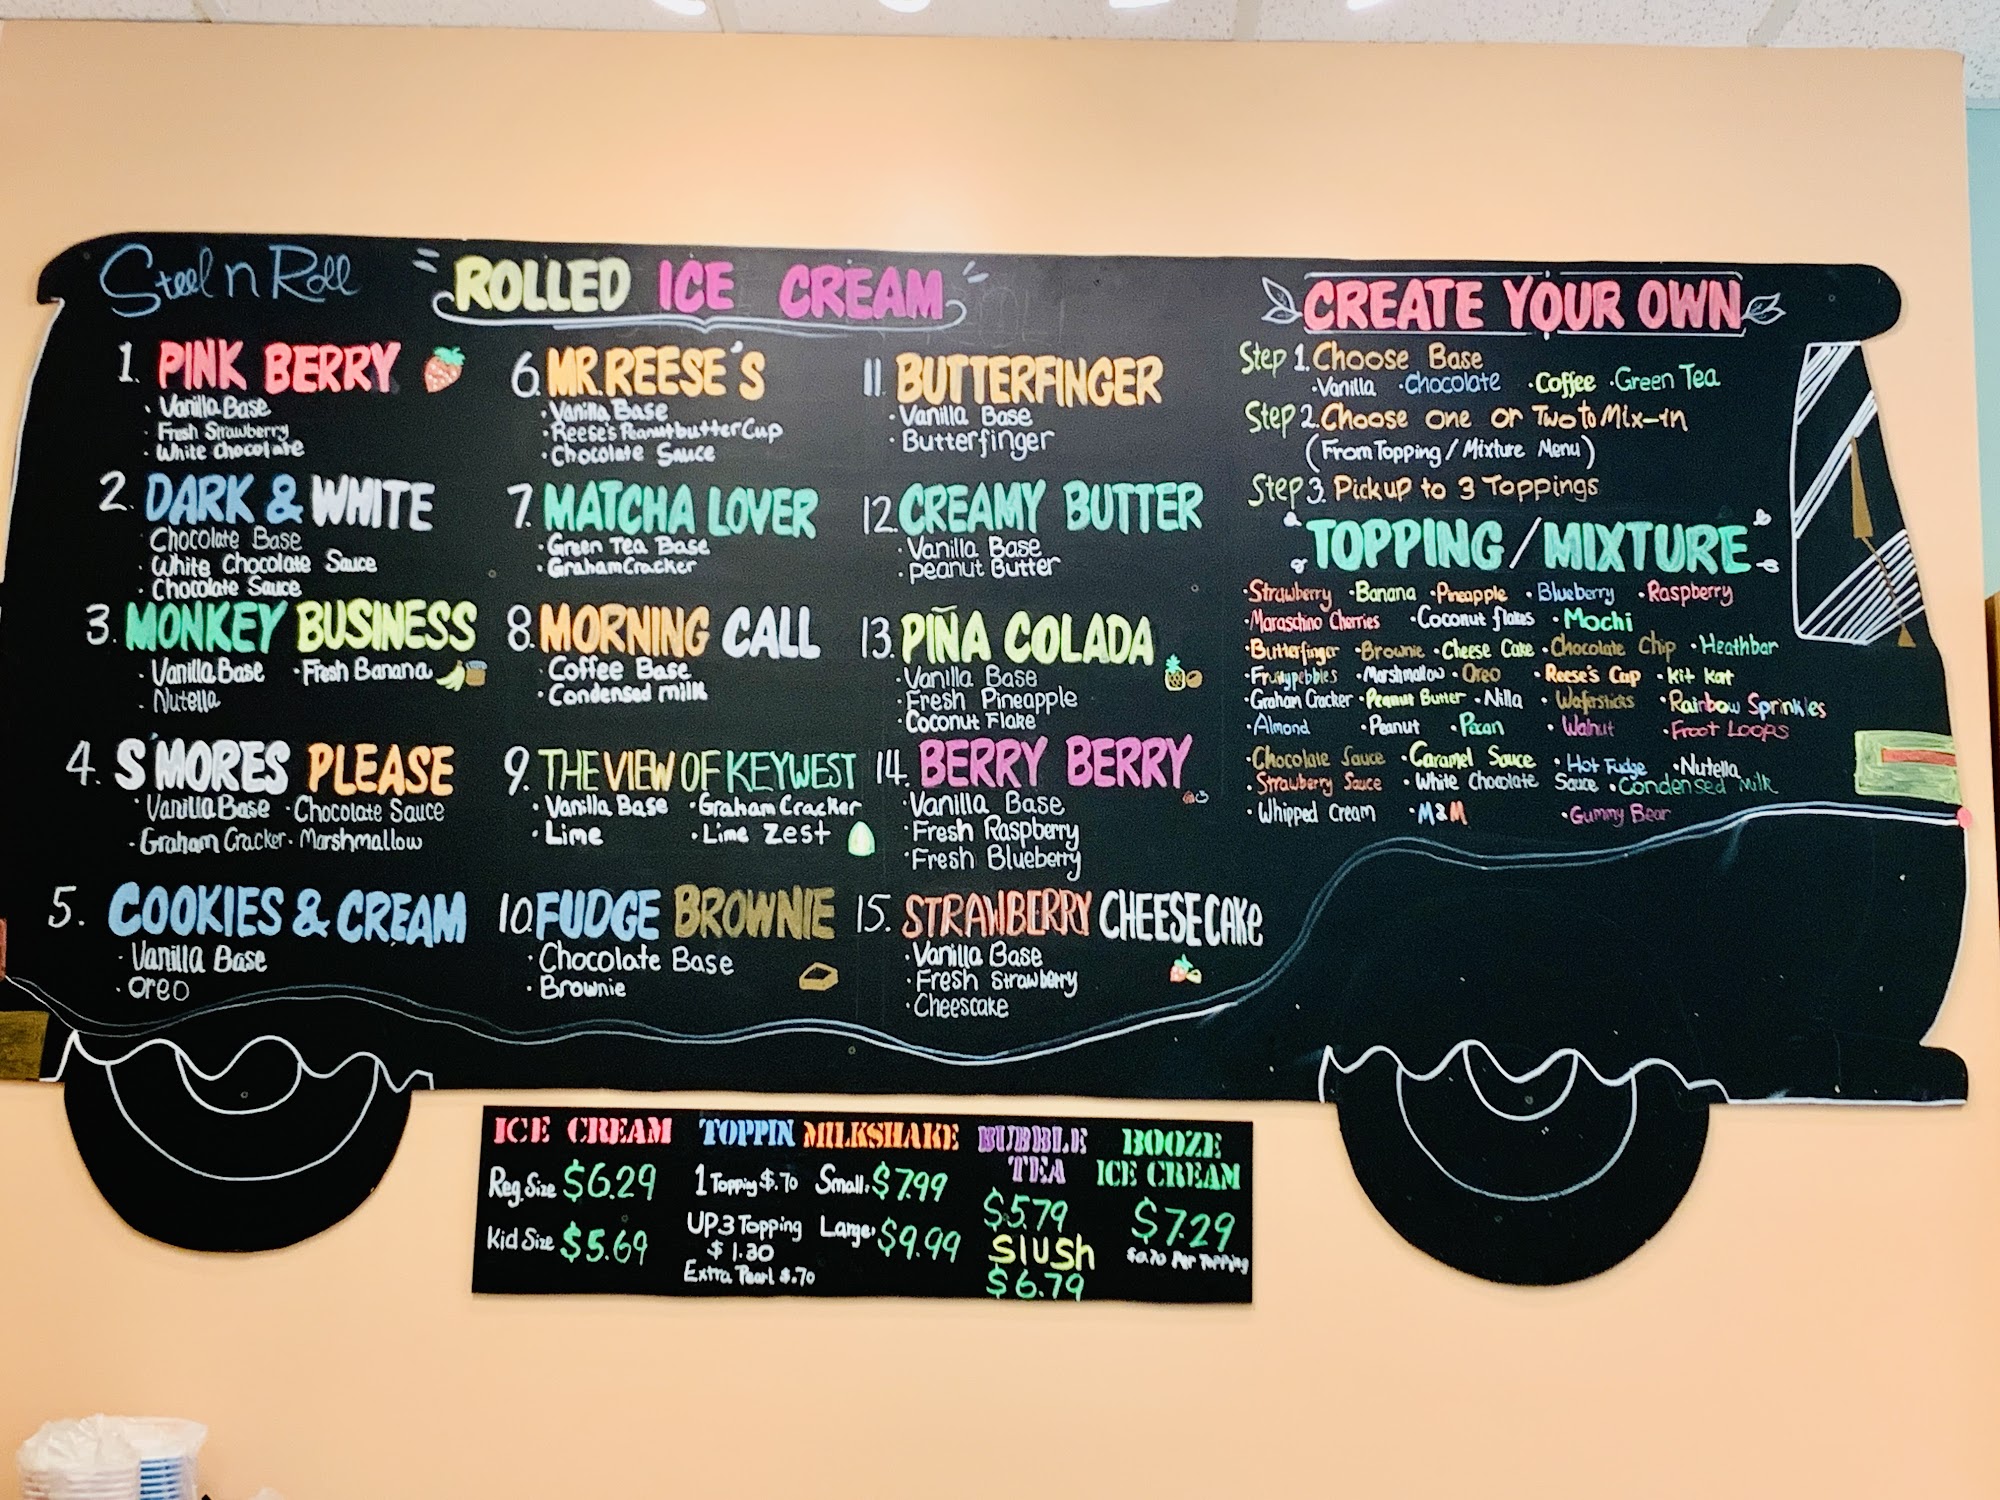 Steel n Roll
ROLLED ICE CREAM
1. PINK BERRY
· Vanilla Base
· Fresh Strawberry
· White Chocolate
2. DARK & WHITE
· Chocolate Base
· White Chocolate Sauce
· Chocolate Sauce
3. MONKEY BUSINESS
· Vanilla Base · Fresh Banana
· Nutella
4. S'MORES PLEASE
· Vanilla Base · Chocolate Sauce
· Graham Cracker · Marshmallow
5. COOKIES & CREAM
· Vanilla Base
· Oreo
6. MR. REESE'S
· Vanilla Base
· Reese's Peanutbutter Cup
· Chocolate Sauce
7. MATCHA LOVER
· Green Tea Base
· Graham Cracker
8. MORNING CALL
· Coffee Base
· Condensed milk
9. THE VIEW OF KEYWEST
· Vanilla Base · Graham Cracker
· Lime · Lime Zest
10. FUDGE BROWNIE
· Chocolate Base
· Brownie
11. BUTTERFINGER
· Vanilla Base
· Butterfinger
12. CREAMY BUTTER
· Vanilla Base
· Peanut Butter
13. PIÑA COLADA
· Vanilla Base
· Fresh Pineapple
· Coconut Flake
14. BERRY BERRY
· Vanilla Base
· Fresh Raspberry
· Fresh Blueberry
15. STRAWBERRY CHEESECAKE
· Vanilla Base
· Fresh Strawberry
· Cheescake
CREATE YOUR OWN
Step 1. Choose Base
· Vanilla · Chocolate · Coffee · Green Tea
Step 2. Choose one or Two to Mix-in
(From Topping / Mixture Menu)
Step 3. Pick up to 3 Toppings
TOPPING / MIXTURE
· Strawberry · Banana · Pineapple · Blueberry · Raspberry
· Maraschino Cherries · Coconut flakes · Mochi
· Butterfinger · Brownie · Cheese Cake · Chocolate Chip · Heathbar
· Fruitypebbles · Marshmallow · Oreo · Reese's Cup · Kit Kat
· Graham Cracker · Peanut Butter · Nilla · Wafersticks · Rainbow Sprinkles
· Almond · Peanut · Pecan · Walnut · Froot Loops
· Chocolate Sauce · Caramel Sauce · Hot Fudge · Nutella
· Strawberry Sauce · White Chocolate Sauce · Condensed Milk
· Whipped Cream · M&M · Gummy Bear
ICE CREAM
Reg. Size $6.29
Kid Size $5.69
TOPPIN
1 Topping $.70
UP 3 Topping
$1.30
Extra Pearl $.70
MILKSHAKE
Small: $7.99
Large: $9.99
BUBBLE
TEA
$5.79
Slush
$6.79
BOOZE
ICE CREAM
$7.29
$0.70 Per Topping